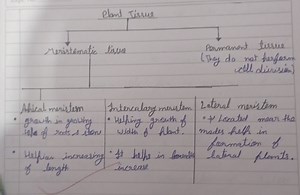 Plant Tissue
Meristematic tissue
Permanent tissue
(They do not perform
cell division)
Apical meristem
• Growth in growing
tips of roots & stem
• Helps in increasing
of length
Intercalary meristem
• Helping growth of
width of plant.
• It helps in
increase
Lateral meristem
• It Located near the
nodes help in
formation of
lateral